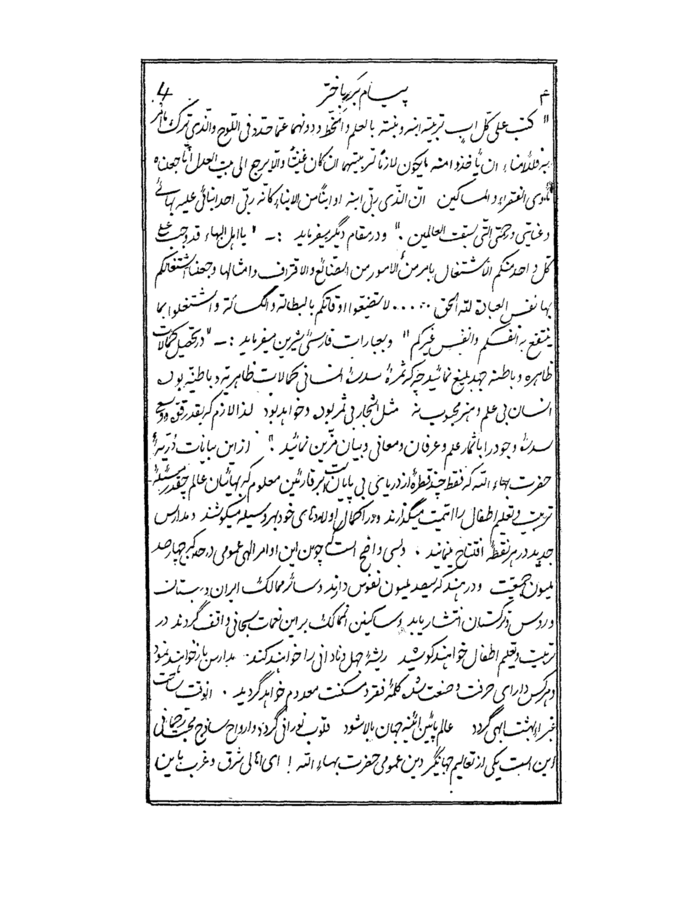 ۴ پیام برَ باختر 4
" کتب علی کلّ اب تربیته ابنه و بنته بالعلم و الخطّ و دونهما عمّا حدّد فی اللّوح و الّذی ترک ما امر
به فللأمناء ان یأخذوا منه ما یکون لازماً لتربیتهما ان کان غنیّاً و الّا یرجع الی بیت العدل انّا جعلناه
مأوی الفقراء و المساکین انّ الّذی ربّی ابنه او ابناً من الابناء کانّه ربّی احد ابنائی علیه بهائی
و عنایتی و رحمتی الّتی سبقت العالمین ." و در مقام دیگر میفرماید :ـ " یا اهل البهاء قد وجب علی
کلّ واحد منکم الأشتغال بامر من الأمور من الصّنائع و الاقتراف و امثالها و جعلنا اشتغالکم
بها نفس العبادة للّه الحقّ ..... لا تضیّعوا اوقاتکم بالبطالة و الکسالة و اشتغلوا بما
ینتفع به انفسکم و انفس غیرکم " و بعبارات فارسی شیرین میفرماید :ـ " در تحصیل کمالات
ظاهره و باطنه جهد بلیغ نمائید چه که ثمرهٔ سدرهٔ انسانی کمالات ظاهریّه و باطنیّه بوده
انسان بی علم و هنر محبوب نه مثل اشجار بی ثمر بوده و خواهد بود لذا لازم که بقدر قوّه و وسع
سدرهٔ وجود را باثمار علم و عرفان و معانی و بیان مزیّن نمائید ." از این بیانات درّیّهٔ
حضرت بهاء اللّه که فقط چند قطرهٔ از دریای بی پایان است بر قارئین معلوم که بهائیان عالم چقدر مسئلهٔ
تربیت و تعلیم اطفال را اهمّیت میگذارند و در اکمال اولادهای خود بهر وسیله میکوشند و مدارس
جدید در هر نقطهٔ افتتاح مینمایند . و بسی واضح است که چون این اوامر الهی عمومی در چهارصد
ملیون جمعیّت و در هند که سیصد ملیون نفوس دارند و سائر ممالک ایران و عربستان
و روس و ترکستان انتشار یابد و ساکنین آنممالک بر این نعمات سبحانی واقف گردند در
تربیت و تعلیم اطفال خواهند کوشید ریشهٔ جهل و نادانی را خواهند کند. مدارس باز خواهند نمود
و هر کس دارای حرفت و صنعت شده کلمهٔ فقر و مسکنت معدوم خواهد گردید . آنوقت است
غبراء بهشت ابهی گردد عالم پائین آئینهٔ جهان بالا شود قلوب نورانی گردد و ارواح ساذج محبّت رحمانی
این است یکی از تعالیم جهانگیر دین عمومی حضرت بهاء اللّه ! ای اهالی شرق و غرب باین